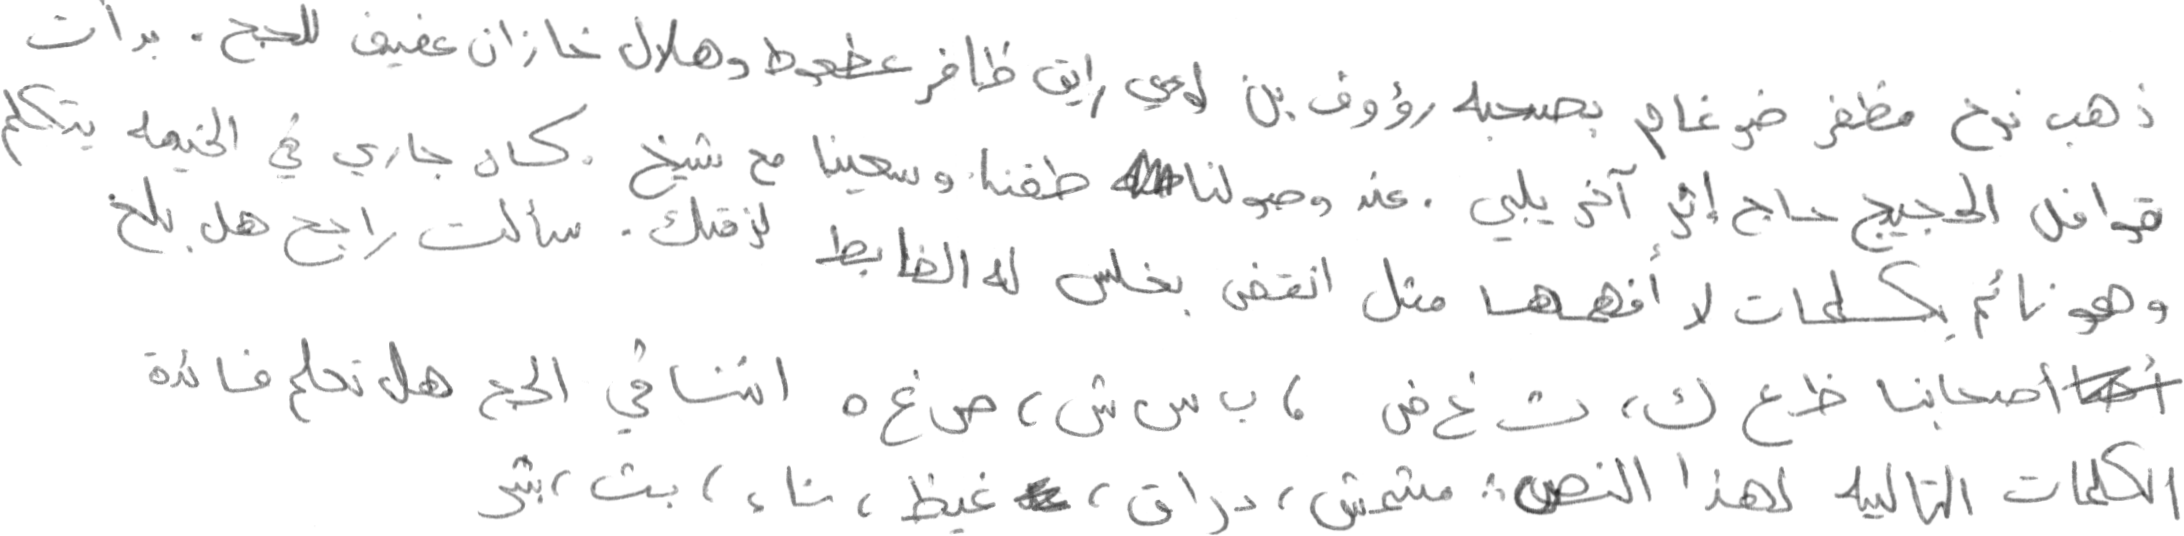 ذهب نوح مظفر ضرغام بصحبه رؤوف بن لاحي رايق ظافر عطعوط وهلال خازان عفيف للحج . بدأت
قوافل الحجيج حاج إثر آخر يلبي . عند وصولنا طفنا وسعينا مع شيخ . كان جاري في الخيمه يتكلم
وهو نائم بكلمات لا أفهمها مثل انقض بغلس له الضابط لزقتك . سألت راجح هل بلغ
أصحابنا ظ ع ك ، ث غ ض ، ب س ش ، ص غ ه اثنا في الحج هل تعلم فائدة
الكلمات التاليه لهذا النص : مشمش ، دراق ، غيظ ، شاء ، بث ، بشر